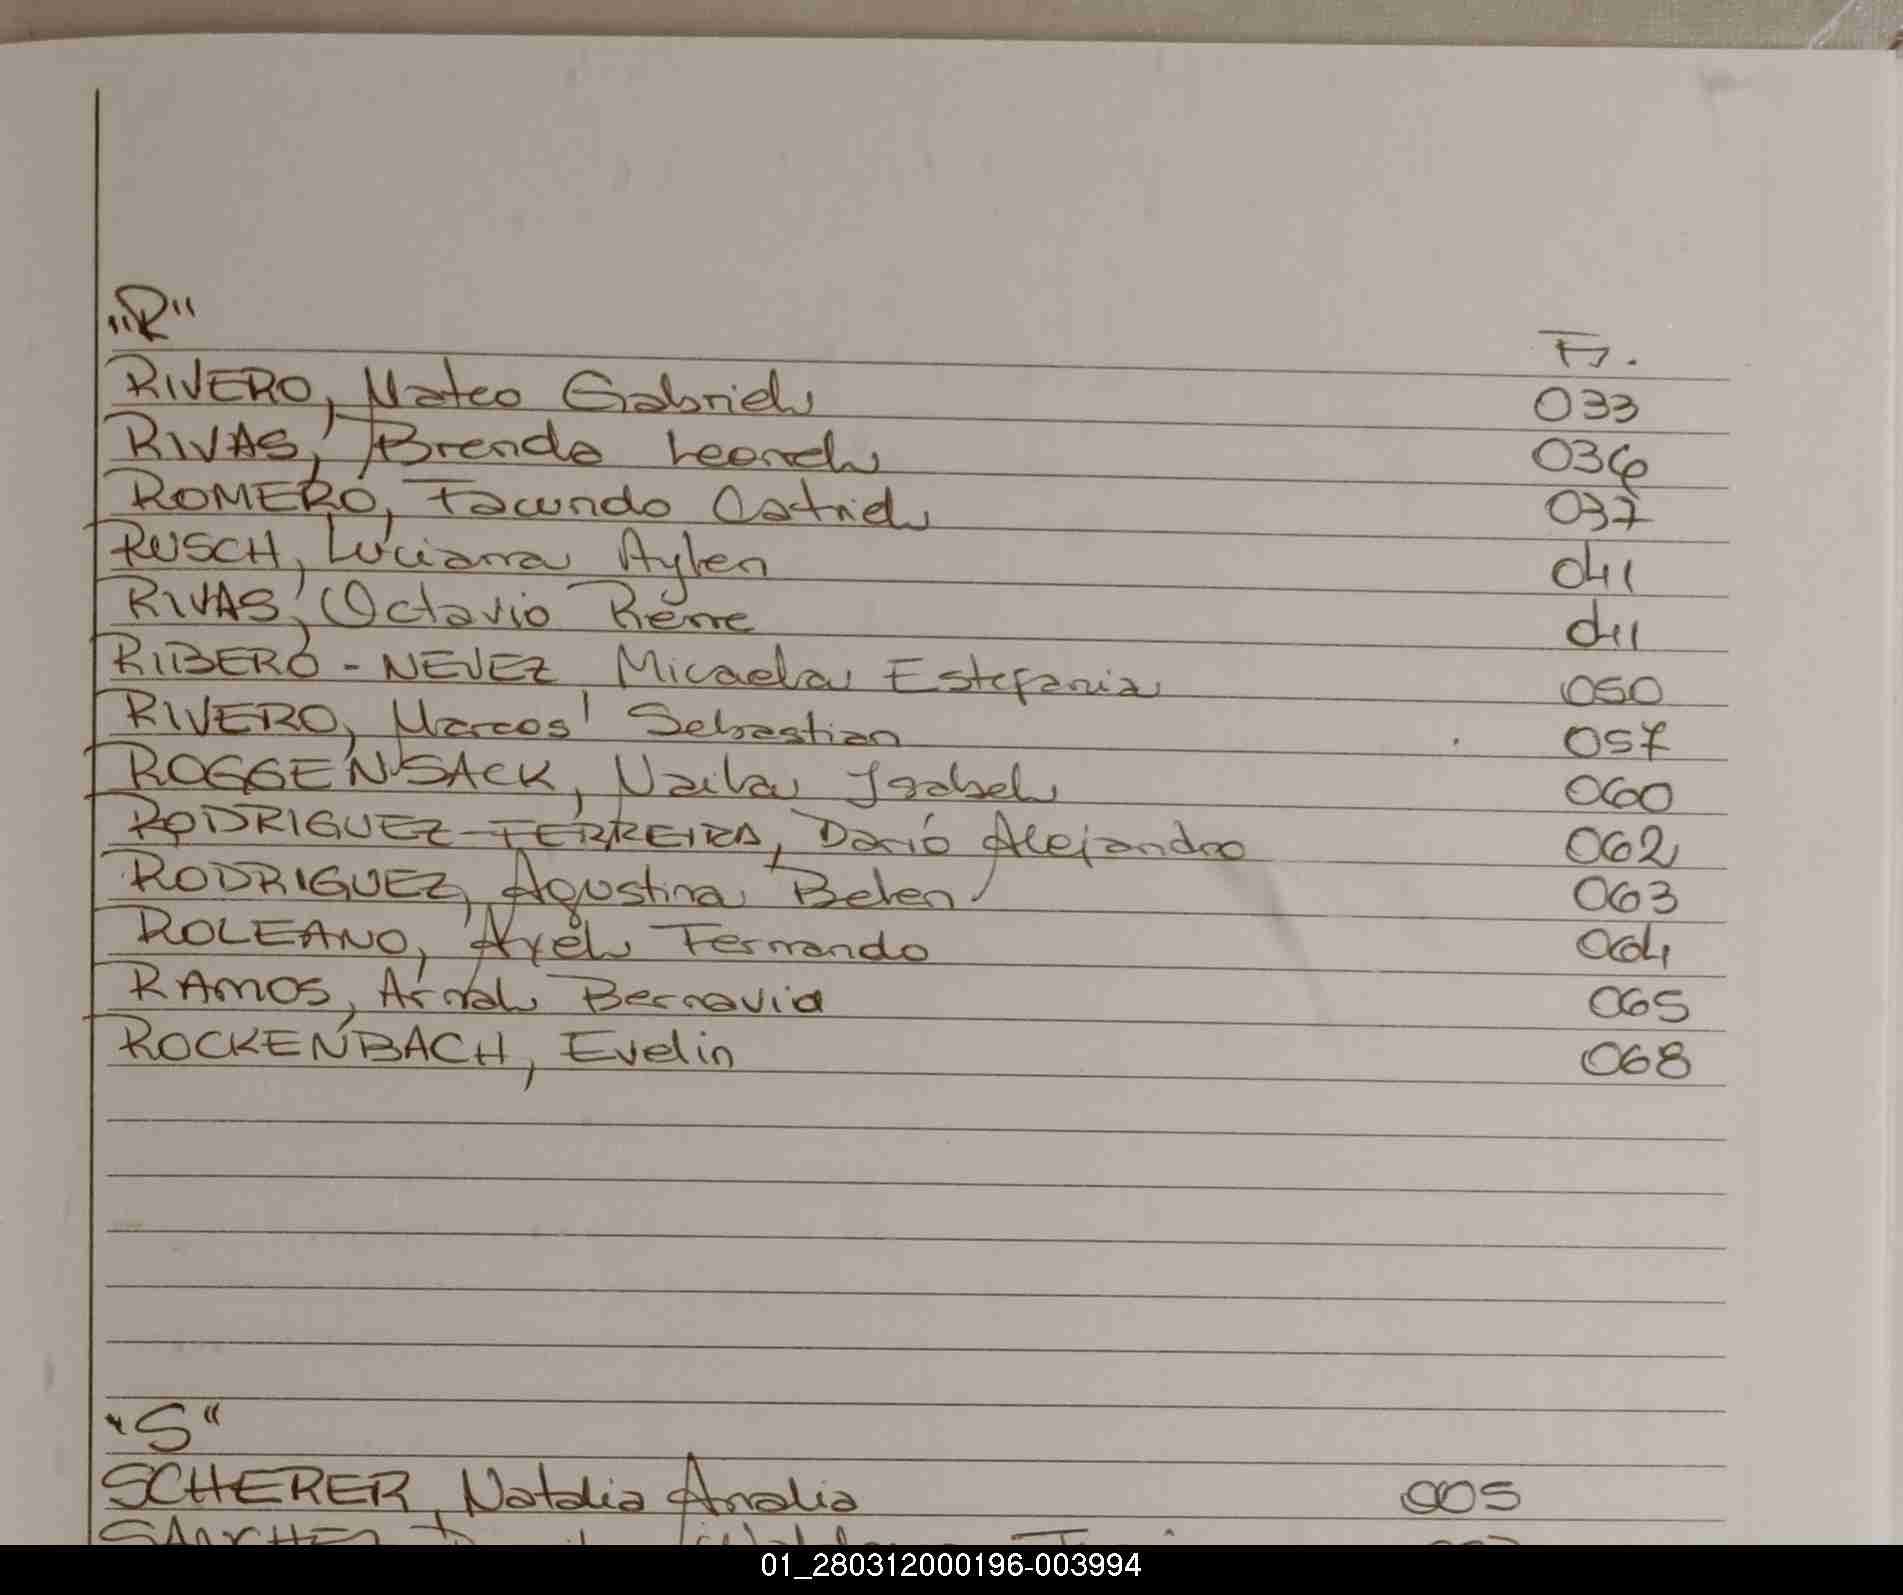 "R"
Fs.
RIVERO, Mateo Gabriel 033
RIVAS, Brenda Leonel 036
ROMERO, Facundo Catriel 037
RUSCH, Luciana Aylen 041
RIVAS, Octavio Pierre 041
RIBERO - NEVEZ Micaela Estefania 050
RIVERO, Marcos Sebastian 057
ROGGENSACK, Naila Isabel 060
RODRIGUEZ-FERREIRA, Darió Alejandro 062
RODRIGUEZ, Agustina Belen 063
ROLEANO, Axel Fernando 064
RAMOS, Bernavia 065
ROCKENBACH, Evelin 068
"S"
SCHERER, Natalia Analia 005
01_280312000196-003994